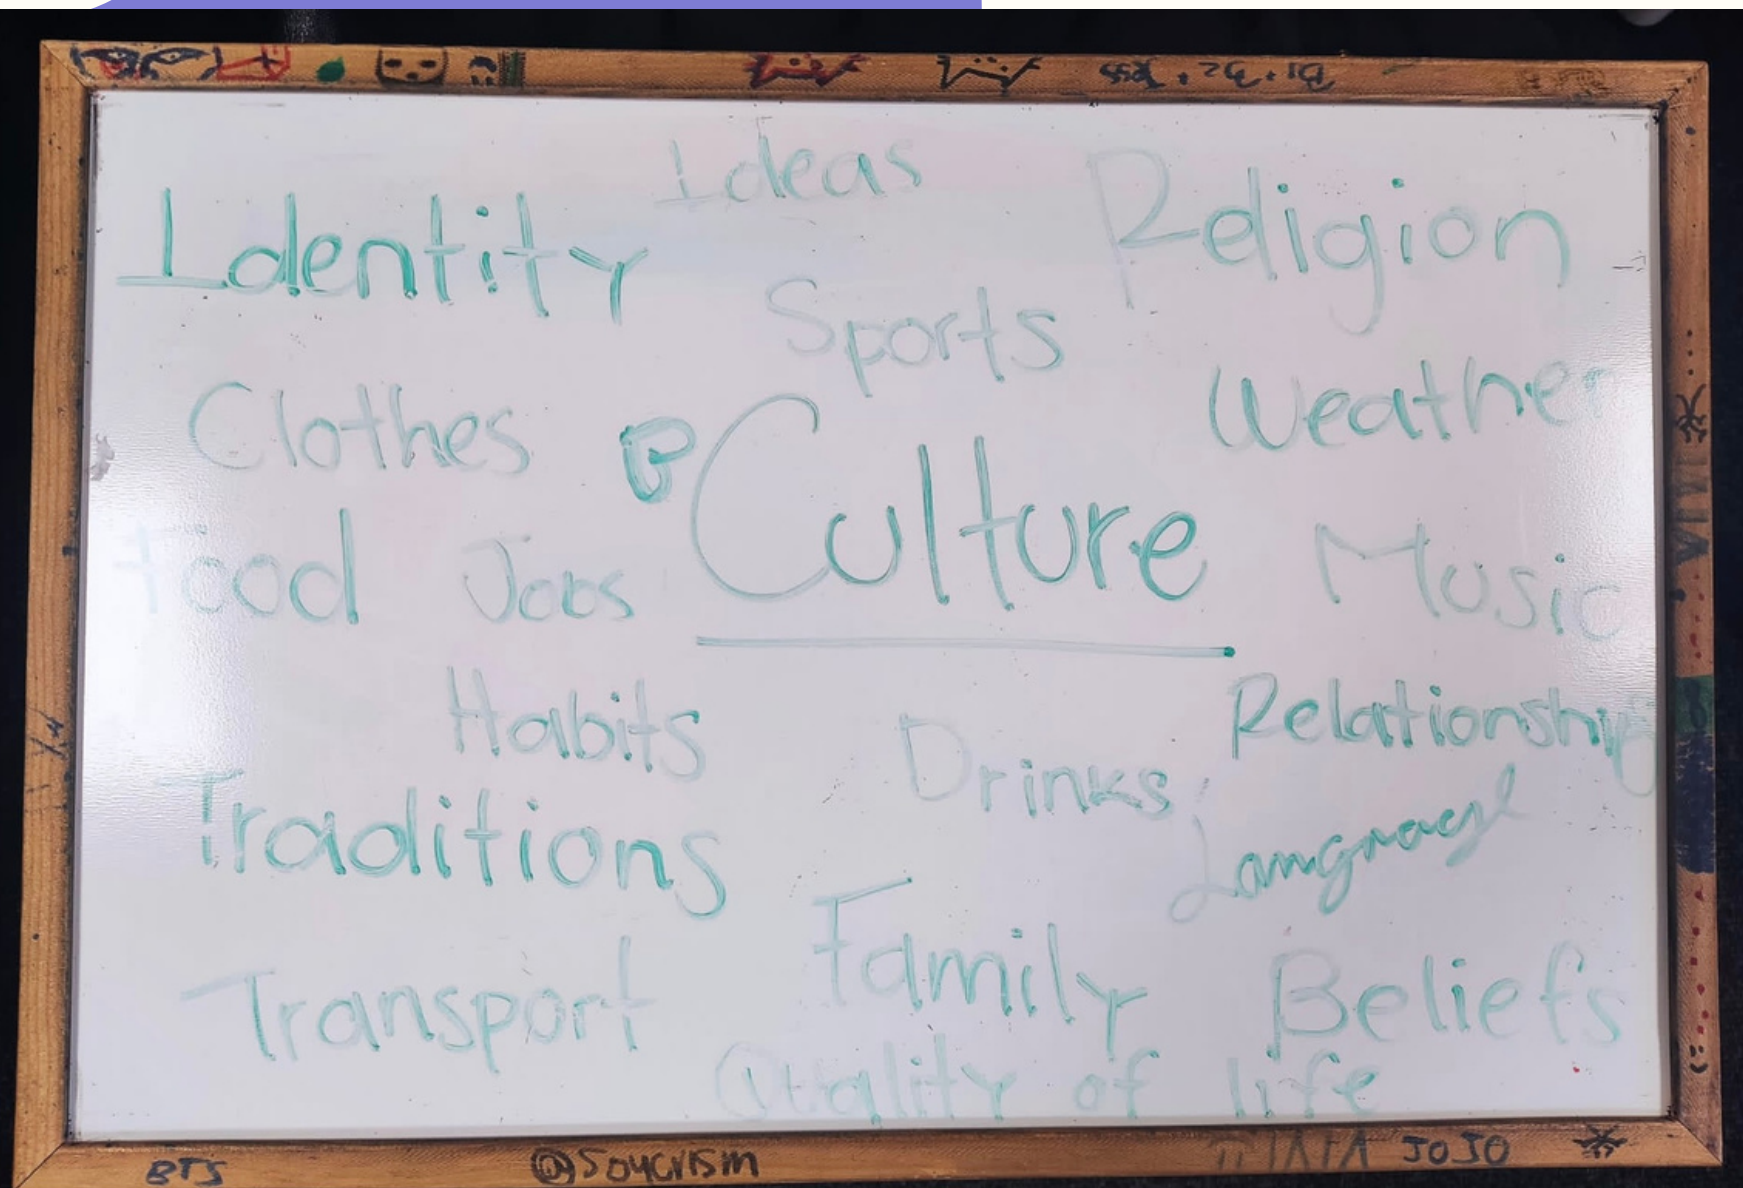 Ideas
Identity
Religion
Sports
Clothes
Weather
Culture
Food
Jobs
Music
Habits
Relationship
Drinks
Traditions
Langrage
Family
Transport
Beliefs
Quality of life
BTS
@Soycrism
JOJO